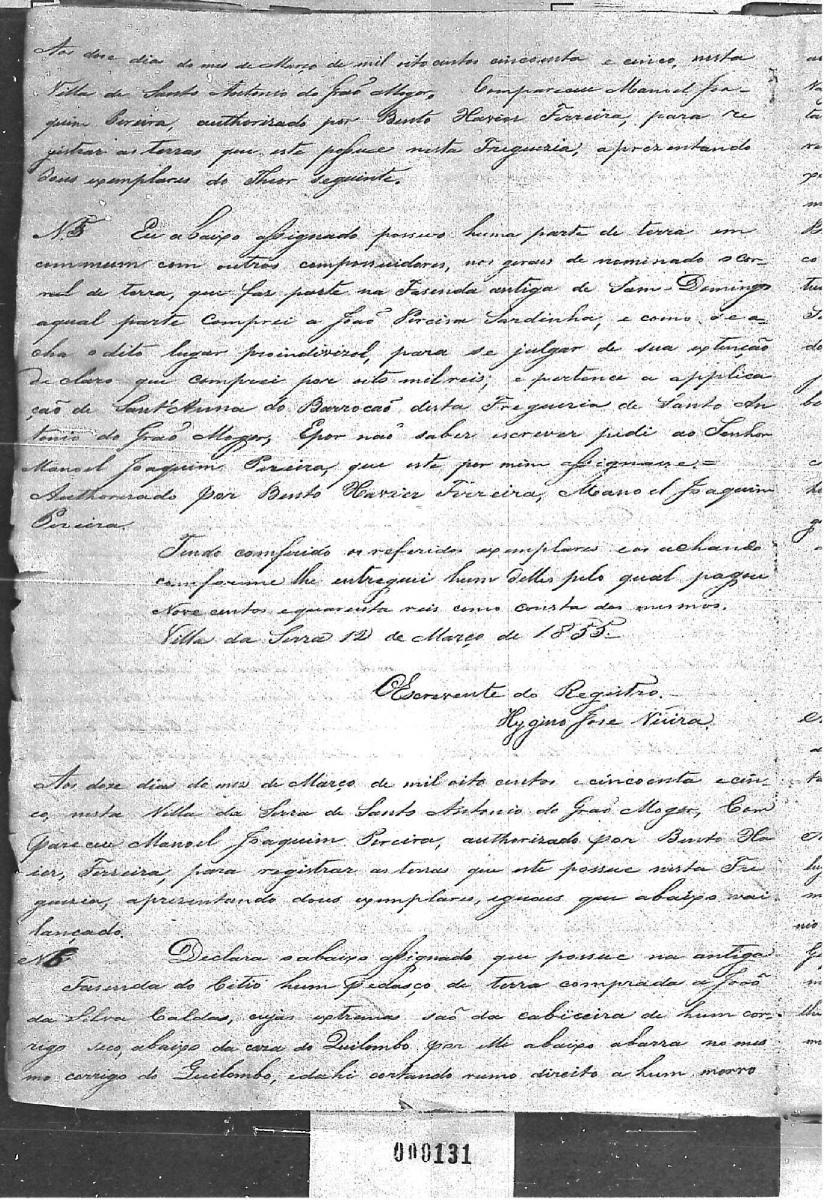 Aos dose dias do mes de Março de mil oito centos cincoenta e cinco, nesta
Villa de Santo Antonio do Graõ Mogor, Compareceu Manoel Joa-
quim Pereira, authorizado por Bento Xavier Ferreira, para re
gistrar as terras que este possue nesta Freguezia, aprezentando
dous exemplares do Theor seguinte.
N. 5 Eu abaixo assignado possuo huma parte de terra em
commum com outros compossuidores, nos geraes de nominado o Cor-
ral de terra, que faz parte na Fasenda antiga de Sam-Domingo
aqual parte comprei a Joaõ Pereira Sardinha, e como se a-
cha o dito lugar proindivizol, para se julgar de sua extenção
de claro que comprei por oito mil reis; e pertence a applica
çaõ de Sant'Anna do Barrocaõ desta Freguezia de Santo An
tonio do Graõ Mogor, Epor naõ saber escrever pedi ao Senhor
Manoel Joaquim Pereira, que este por mim assignasse.=
Authorisado por Bento Xavier Ferreira, Manoel Joaquim
Pereira.
Tendo comferido os referidos exemplares e os achando
comforme lhe entreguei hum delles pelo qual pagou
Nove centos equarenta reis como consta dos mesmos.
Villa da Serra 12 de Março de 1855.-
O Escrevente do Registro.-
Hygino Jose Vieira.
Aos doze dias do mez de Março de mil oito centos e cincoenta ecin-
co, nesta Villa da Serra de Santo Antonio do Graõ Mogor, Com
pareceu Manoel Joaquim Pereira, authorizado por Bento Xa
vier, Ferreira, para registrar as terras que este possue nesta Fre
guezia, aprezentando dous exemplares, iguaes que abaixo vai
lançado.
N. 6 Declara o abaixo assignado que possue na antiga
Fasenda do Citio hum Pedaço de terra comprada a Joaõ
da Silva Caldas, cujas extremas saõ da cabiceira de hum cor-
rigo seco, abaixo da caza do Quilombo por elle abaixo abarra no mes
mo corrigo do Quilombo, edahi cortando rumo direito a hum morro
000131